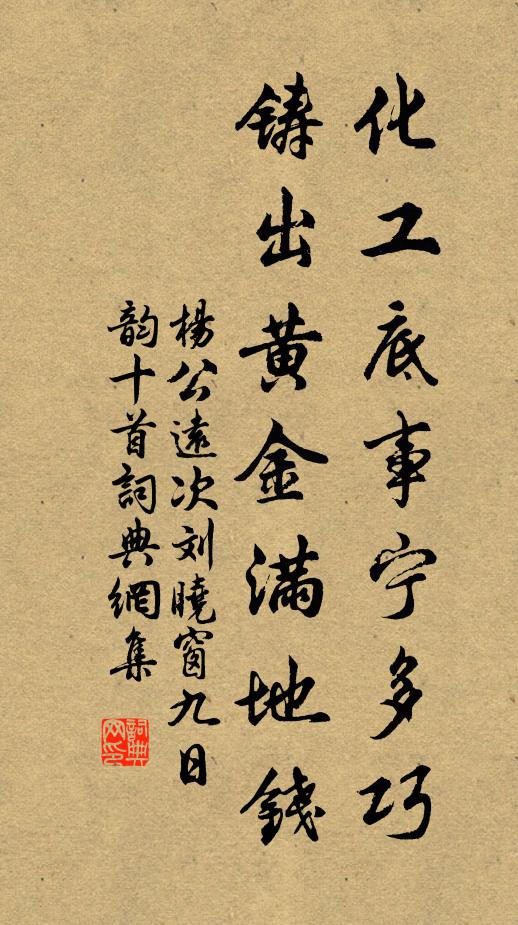 化工底事宁多巧
铸出黄金满地錢
楊公遠次刘曉窗九日
韵十首詞典網集
詞典网印